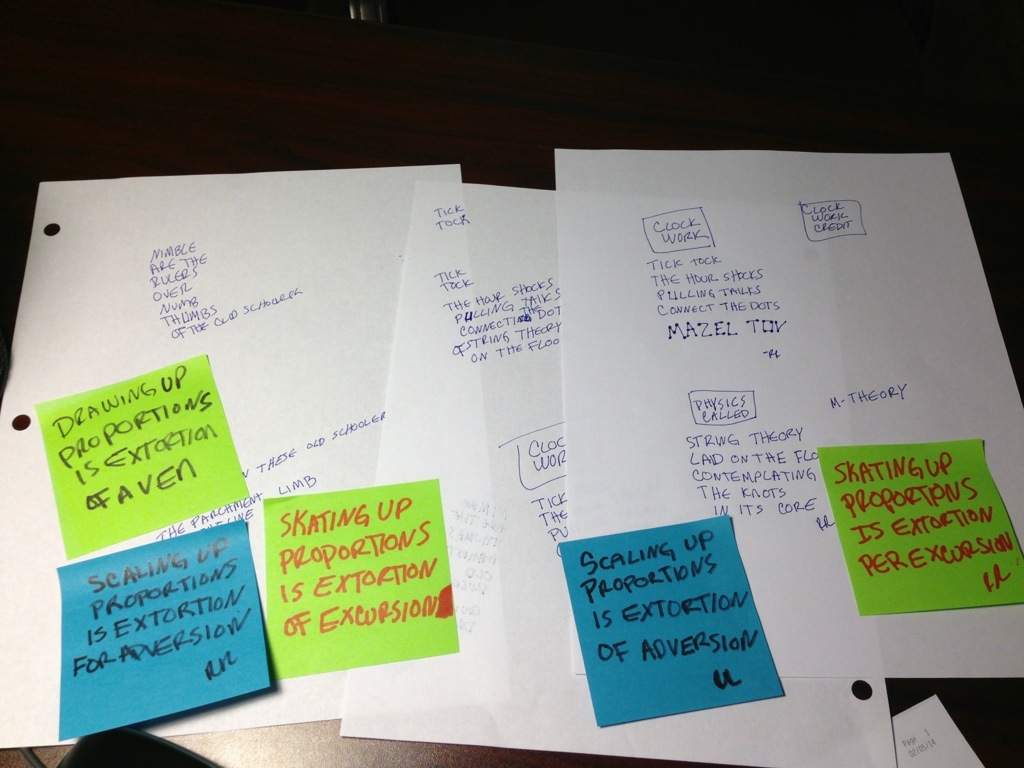 NIMBLE
ARE THE
RULERS
OVER
NUMB
THUMBS
OF THE OLD SCHOOLER
THESE OLD SCHOOLER
LIMB
THE PARCHMENT
DRAWING UP
PROPORTIONS
IS EXTORTION
OF AVEN
SCALING UP
PROPORTIONS
IS EXTORTION
FOR ADVERSION
RR
SKATING UP
PROPORTIONS
IS EXTORTION
OF EXCURSION
TICK
TOCK
TICK
TOCK
THE HOUR SHOCKS
PULLING TALKS
CONNECTING THE DOT
OF STRING THEORY
ON THE FLOO
CLOC
WOR
TICK
THE
PU
CLOCK
WORK
TICK TOCK
THE HOUR SHOCKS
PULLING TALKS
CONNECT THE DOTS
MAZEL TOV
-RR
CLOCK
WORK
CREDIT
PHYSICS
CALLED
M-THEORY
STRING THEORY
LAID ON THE FLO
CONTEMPLATING
THE KNOTS
IN ITS CORE
RR
SCALING UP
PROPORTIONS
IS EXTORTION
OF ADVERSION
SKATING UP
PROPORTIONS
IS EXTORTION
PER EXCURSION
Page 1
02/05/14